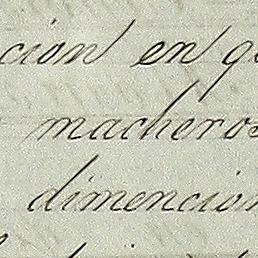 cion en q
macheros
dimencion